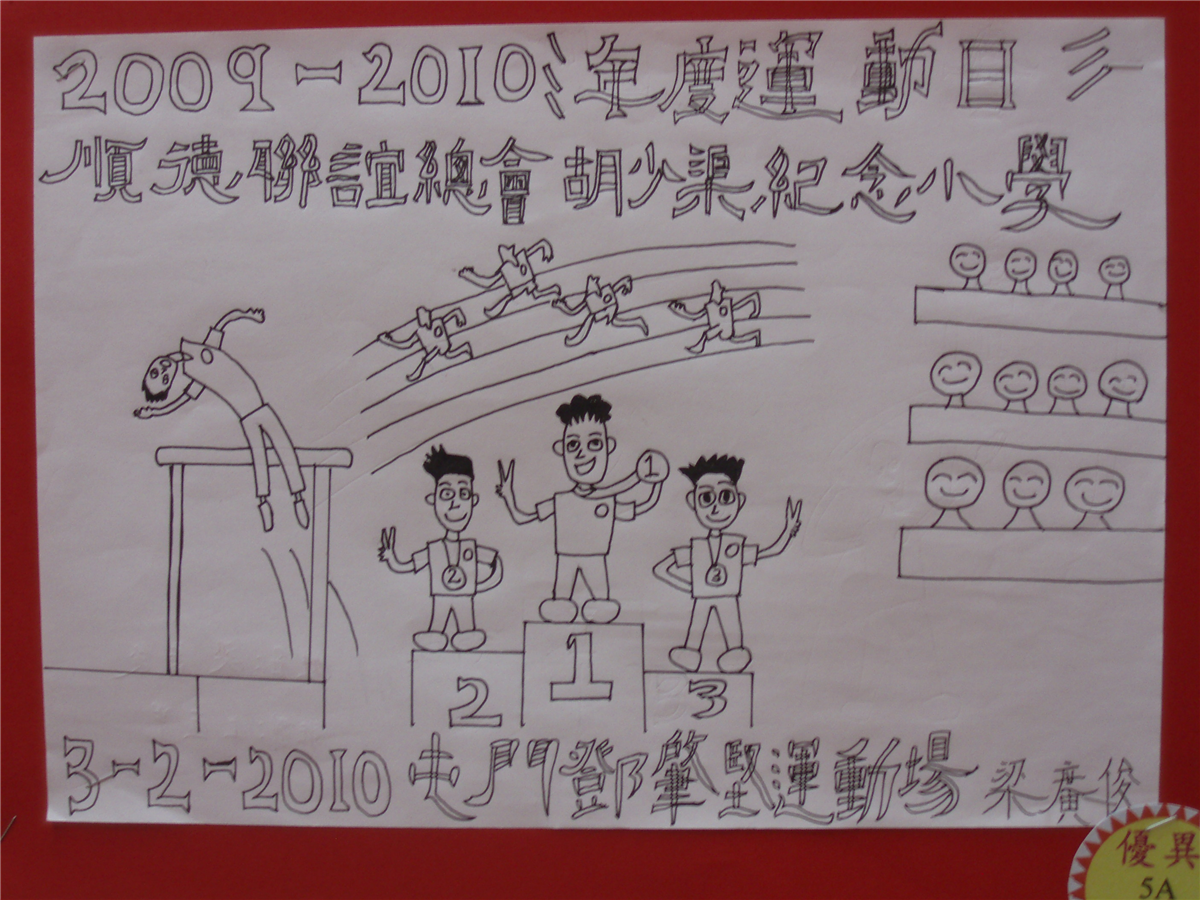 2009-2010年度運動日
順德聯誼總會胡少渠紀念小學
1
2
3
1
2
3
3-2-2010 屯門鄧肇堅運動場 梁廣俊
優異
5A